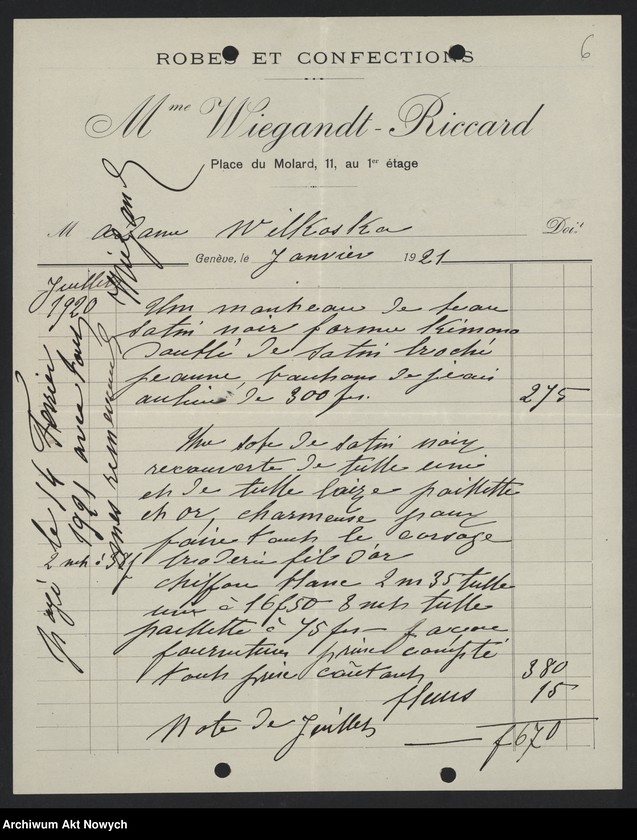 6
ROBES ET CONFECTIONS
Mme Wiegandt-Riccard
Place du Molard, 11, au 1er étage
Madame Wilkoska Doit
Genève, le Janvier 1921
Juillet
1920
Un manteau de beau
satin noir forme Kimono
doublé de satin broché
jeaune, boutons de jeais
au lieu de 300 frs. 275
Une robe de satin noir
recouverte de tulle uni
et de tulle laize paillette
et or, charmeuse pour
faire tout le corsage
2 mts à broderie fil d'or
chiffon blanc 2 m 35 tulle
uni à 16f50 8 mts tulle
paillette à 75 frs façon
fournitures prix compté
tout prix coûtant 380
fleurs 15
Note de Juillet f 670
Payé le 14 Fevrier
1921 avec tous
mes remerciements
Wiegandt
Archiwum Akt Nowych